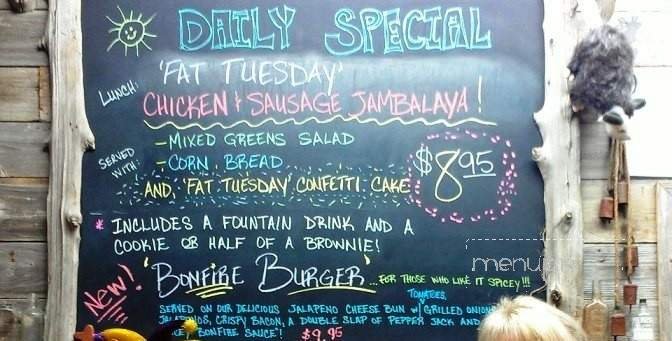 DAILY SPECIAL
LUNCH: 'FAT TUESDAY'
CHICKEN & SAUSAGE JAMBALAYA!
SERVED WITH:
- MIXED GREENS SALAD
- CORN BREAD
AND, 'FAT TUESDAY' CONFETTI CAKE
$8.95
* INCLUDES A FOUNTAIN DRINK AND A
COOKIE OR HALF OF A BROWNIE!
NEW!
'BONFIRE BURGER' ...FOR THOSE WHO LIKE IT SPICEY!!!
TOMATOES,
SERVED ON OUR DELICIOUS JALAPENO CHEESE BUN w/ GRILLED ONIONS
CRISPY BACON, A DOUBLE SLAP OF PEPPER JACK AND
BONFIRE SAUCE! $9.95